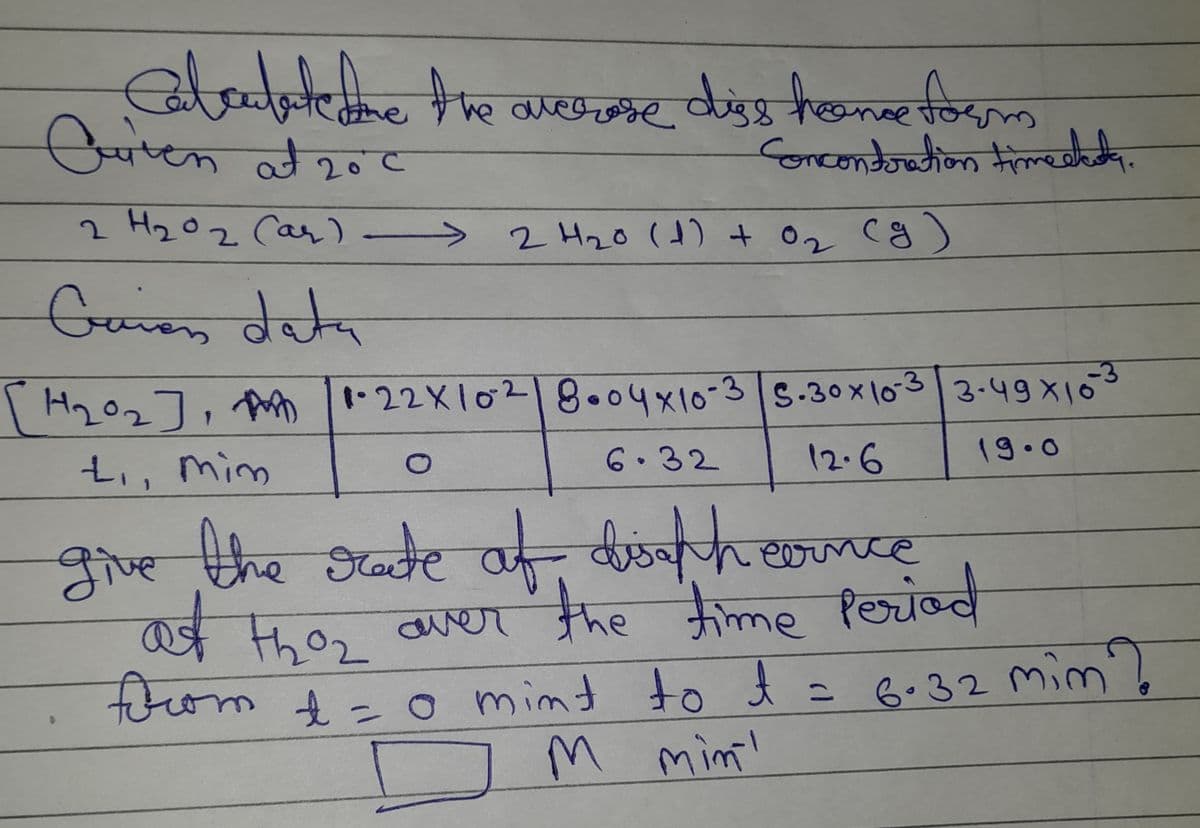 Calculate the the average diss hearnce form
Given at 20°C Concontoration time data.
2 H2O2 (aq) → 2 H2O (l) + O2 (g)
Given data
[H2O2], m | 1.22×10-2 | 8.04×10-3 | 5.30×10-3 | 3.49×10-3
t1, min | 0 | 6.32 | 12.6 | 19.0
give the rate of disappheernce
of H2O2 over the time Period
from t = 0 mint to t = 6.32 min?
M min-1